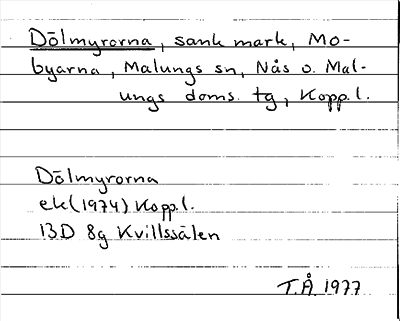 Dölmyrorna, sank mark, Mo-
byarna, Malungs sn, Nås o. Mal-
ungs doms. tg, Kopp.l.
Dölmyrorna
ek (1974) Kopp.l.
13D 8g Kvillssälen
T.Å. 1977